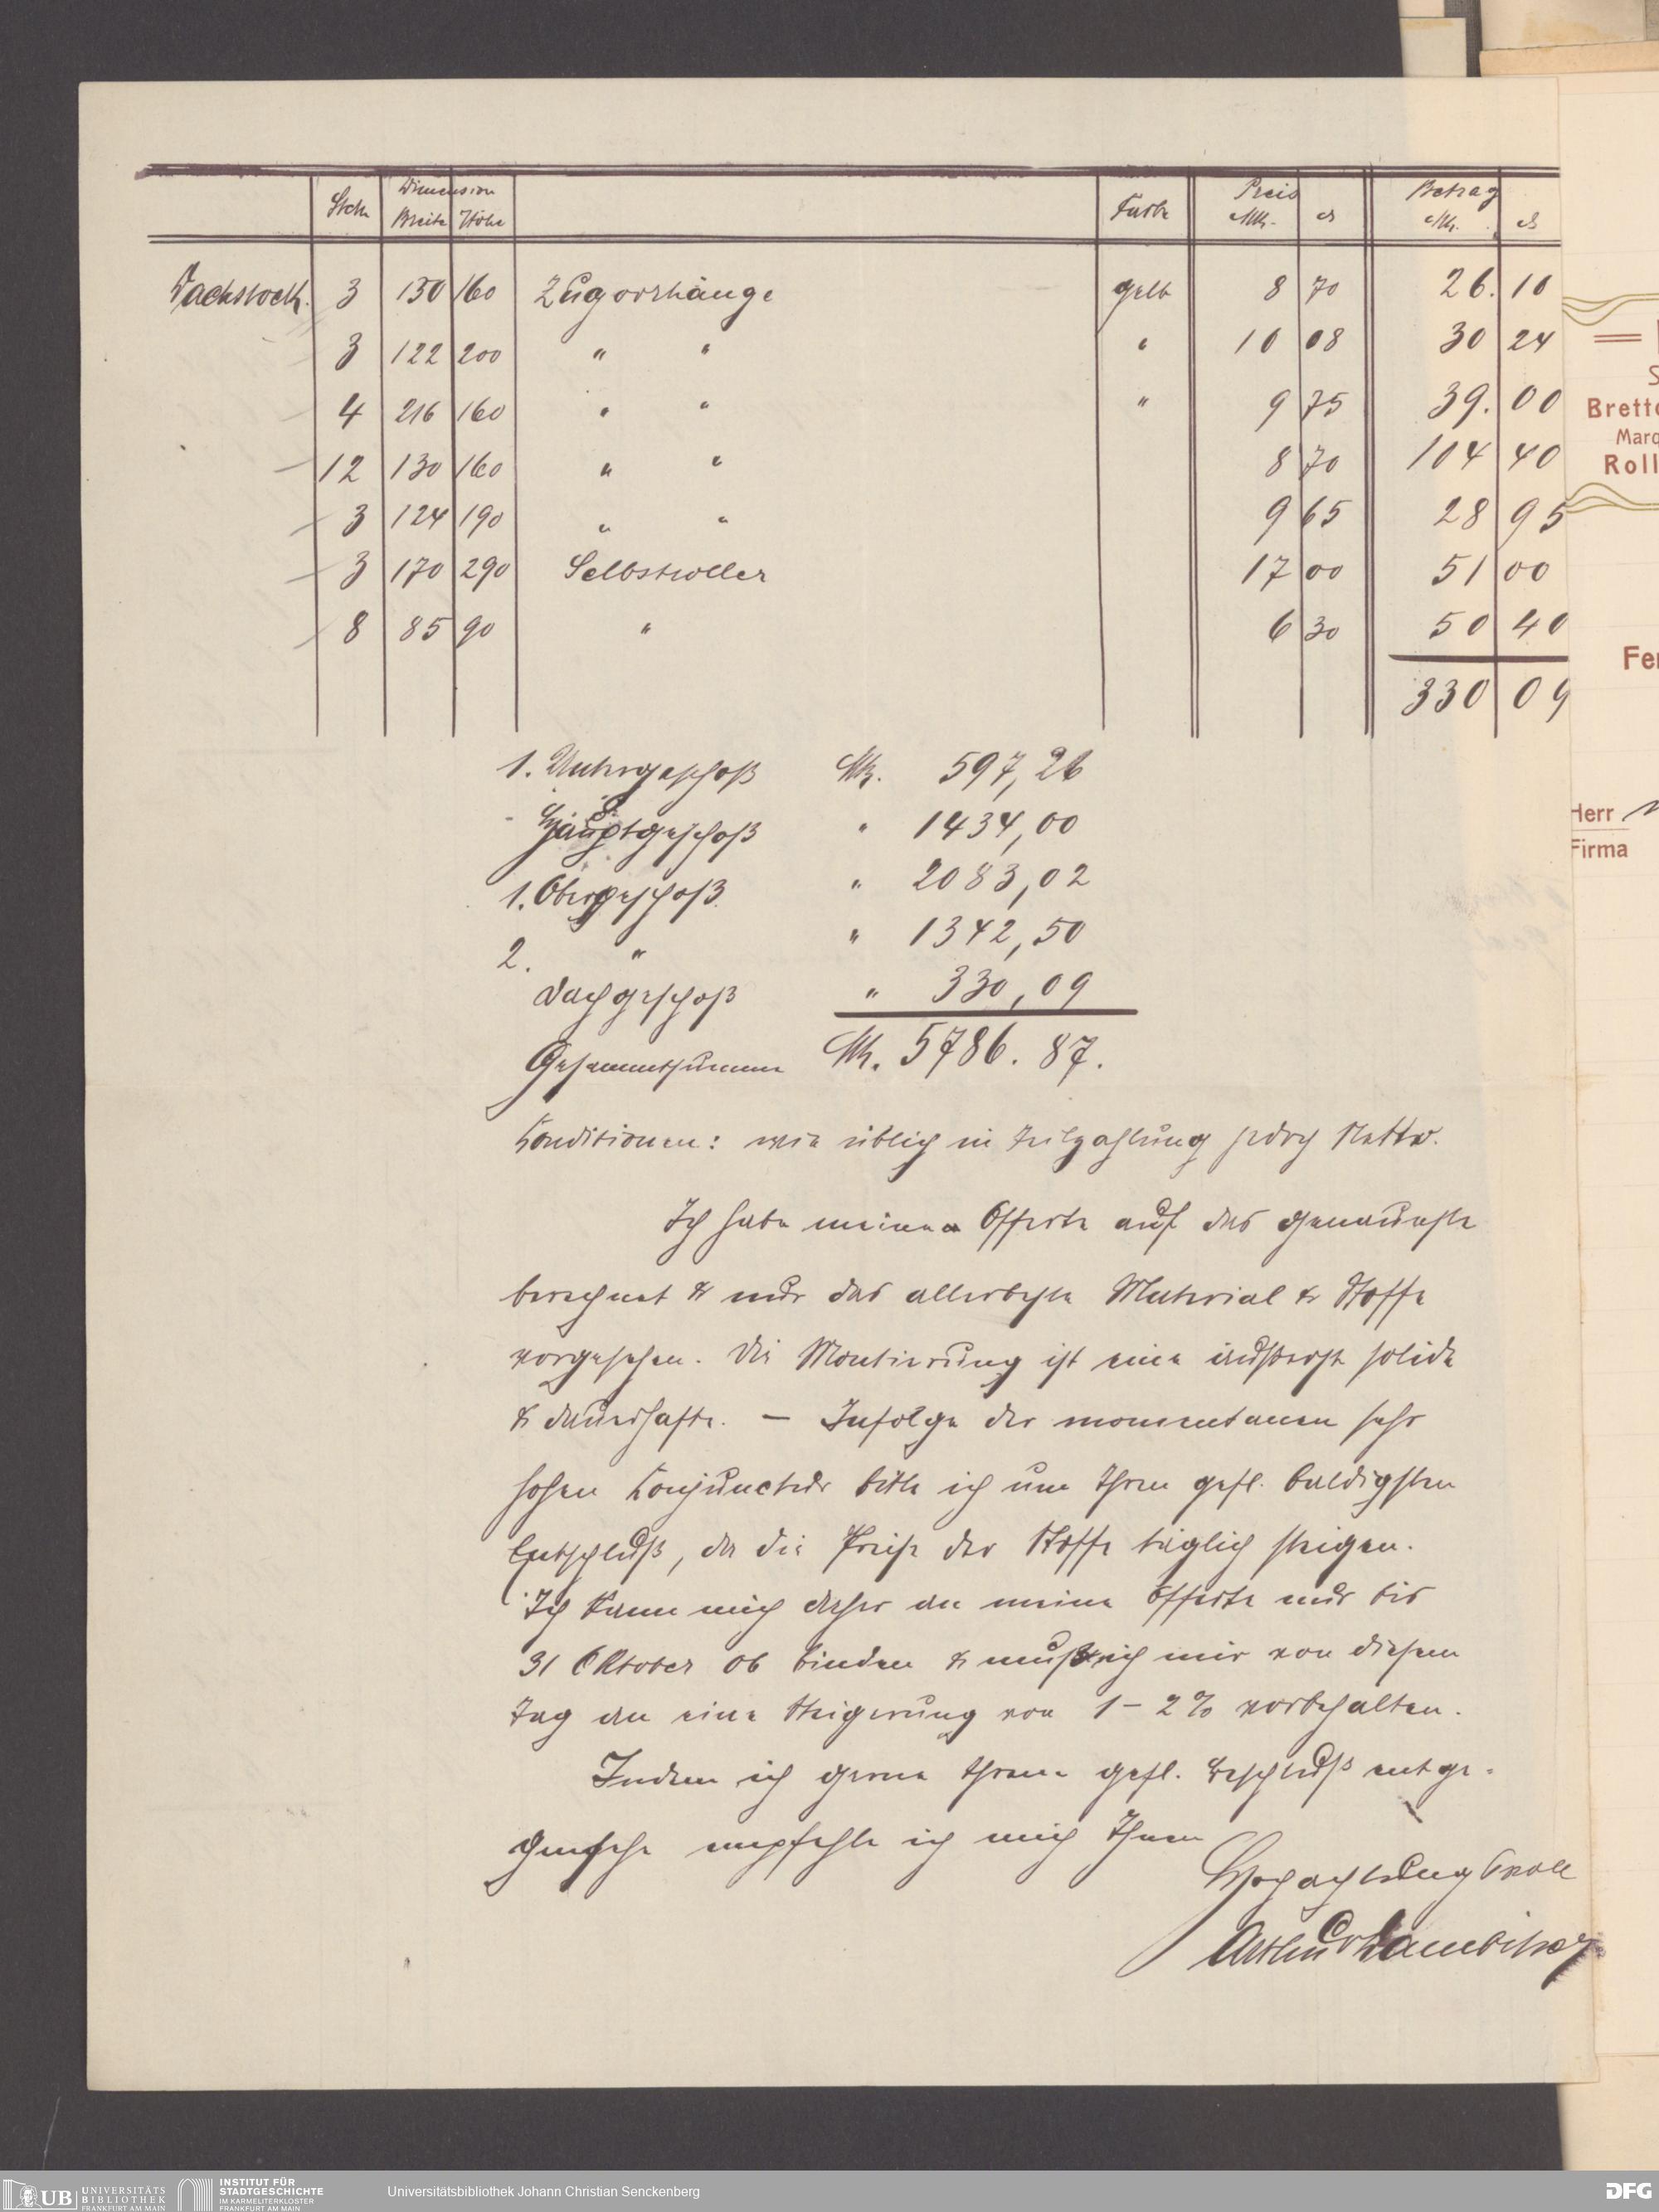 Stck Dimension Farbe Preis Betrag
Breite Höhe Mk. ₰ Mk. ₰
Dachstock. 3 130 160 Zugvorhänge gelb 8 70 26. 10
3 122 200 " " " 10 08 30 24
4 216 160 " " " 9 75 39. 00
12 130 160 " " 8 70 104 40
3 124 190 " " 9 65 28 95
3 170 290 Selbstroller 17 00 51 00
8 85 90 " 6 30 50 40
330 09
1. Untergeschoß Mk. 597,26
Hauptgeschoß " 1434,00
1. Obergeschoß. " 2083,02
2. " " 1342,50
Dachgeschoß " 330,09
Gesammtsumme Mk. 5786. 87.
Conditionen: wie üblich in Teilzahlung jedoch Netto.
Ich habe meine Offerte auf das genaueste
berechnet & nur das allerbeste Material & Stoffe
vorgesehen. Die Montierung ist eine äußerst solide
& dauerhafte. – Infolge der momentanen sehr
hohen Conjunctur bitte ich um Ihren gefl. baldigsten
Entschluß, da die Preise der Stoffe täglich steigen.
Ich kann mich daher an meine Offerte nur bis
31 Oktober 06 binden & muß ich mir von diesem
Tag an eine Steigerung von 1–2% vorbehalten.
Indem ich gerne Ihrem gefl. Beschluß entge-
gensehe empfehle ich mich Ihnen
Hochachtungsvoll
Arthur
Brett
Roll
Herr
Firma
UB UNIVERSITÄTS
BIBLIOTHEK
FRANKFURT AM MAIN
INSTITUT FÜR
STADTGESCHICHTE
IM KARMELITERKLOSTER
FRANKFURT AM MAIN
Universitätsbibliothek Johann Christian Senckenberg
DFG